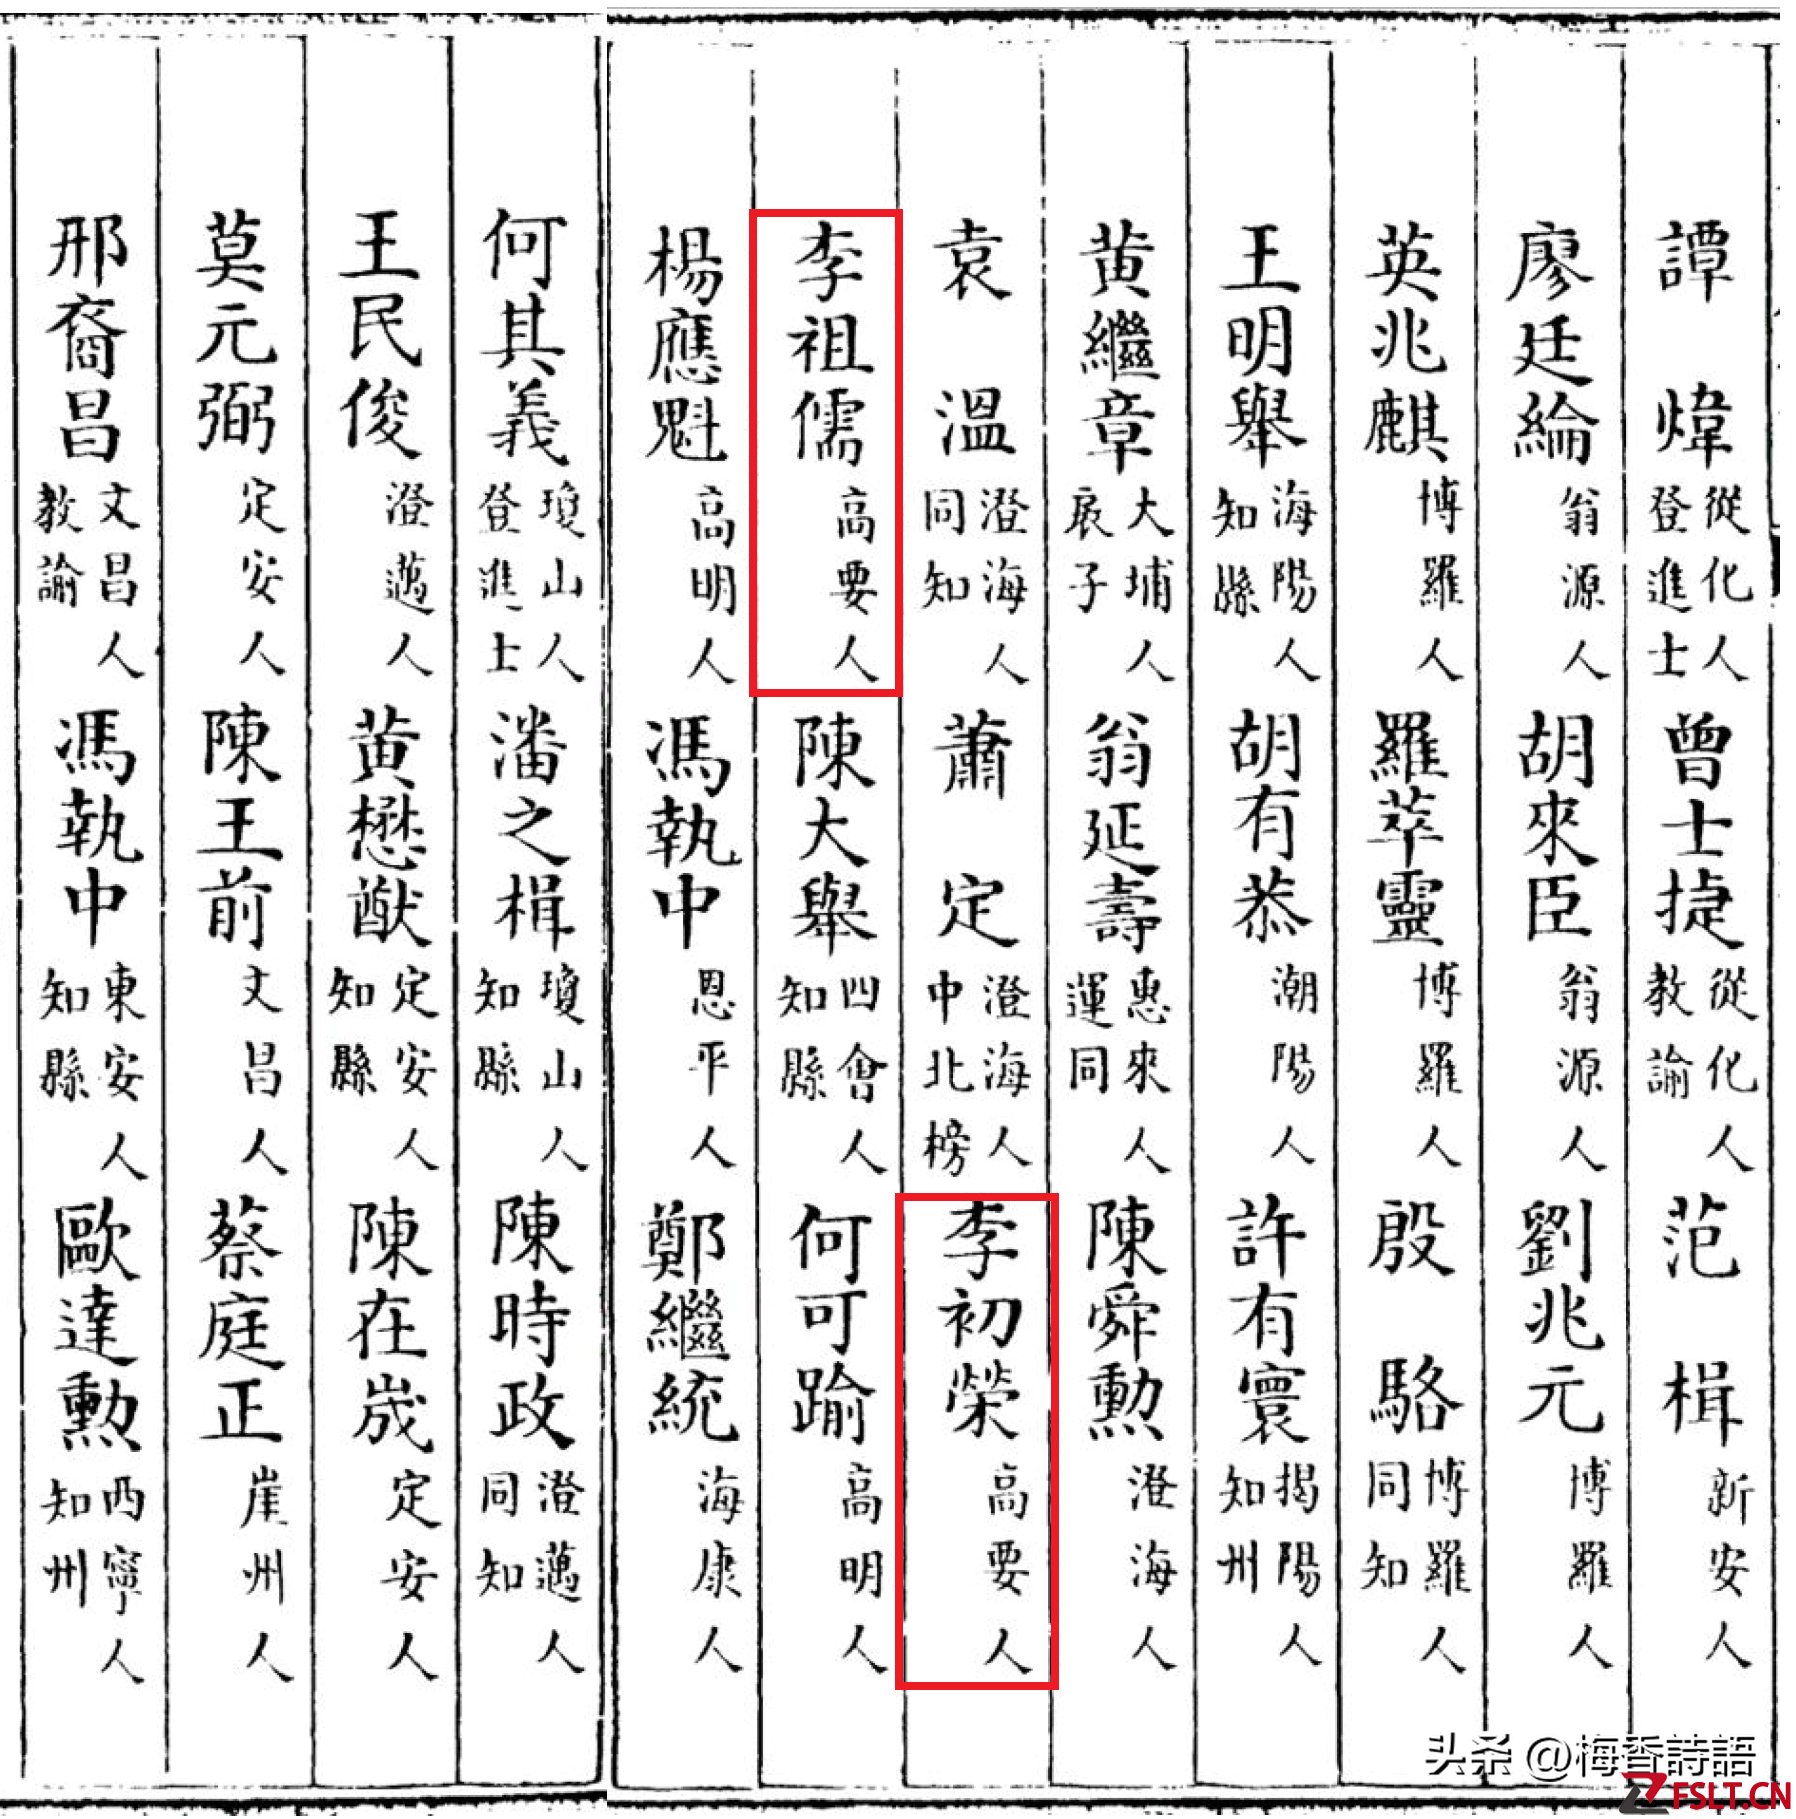 譚煒從化人登進士曾士捷從化人教諭范楫新安人
廖廷綸翁源人胡來臣翁源人劉兆元博羅人
英兆麒博羅人羅萃靈博羅人殷駱博羅人同知
王明舉海陽人知縣胡有恭潮陽人許有寰揭陽人知州
黄繼章大埔人展子翁延壽惠來人運同陳舜勲澄海人
袁溫澄海人同知蕭定澄海人中北榜李初榮高要人
李祖儒高要人陳大舉四會人知縣何可踰高明人
楊應魁高明人馮執中恩平人鄭繼統海康人
何其義瓊山人登進士潘之楫瓊山人知縣陳時政澄邁人同知
王民俊澄邁人黄懋猷定安人知縣陳在宬定安人
莫元弼定安人陳王前文昌人蔡庭正崖州人
邢裔昌文昌人教諭馮執中東安人知縣歐達勲西寧人知州
头条 @梅香詩語
FSLT.CN